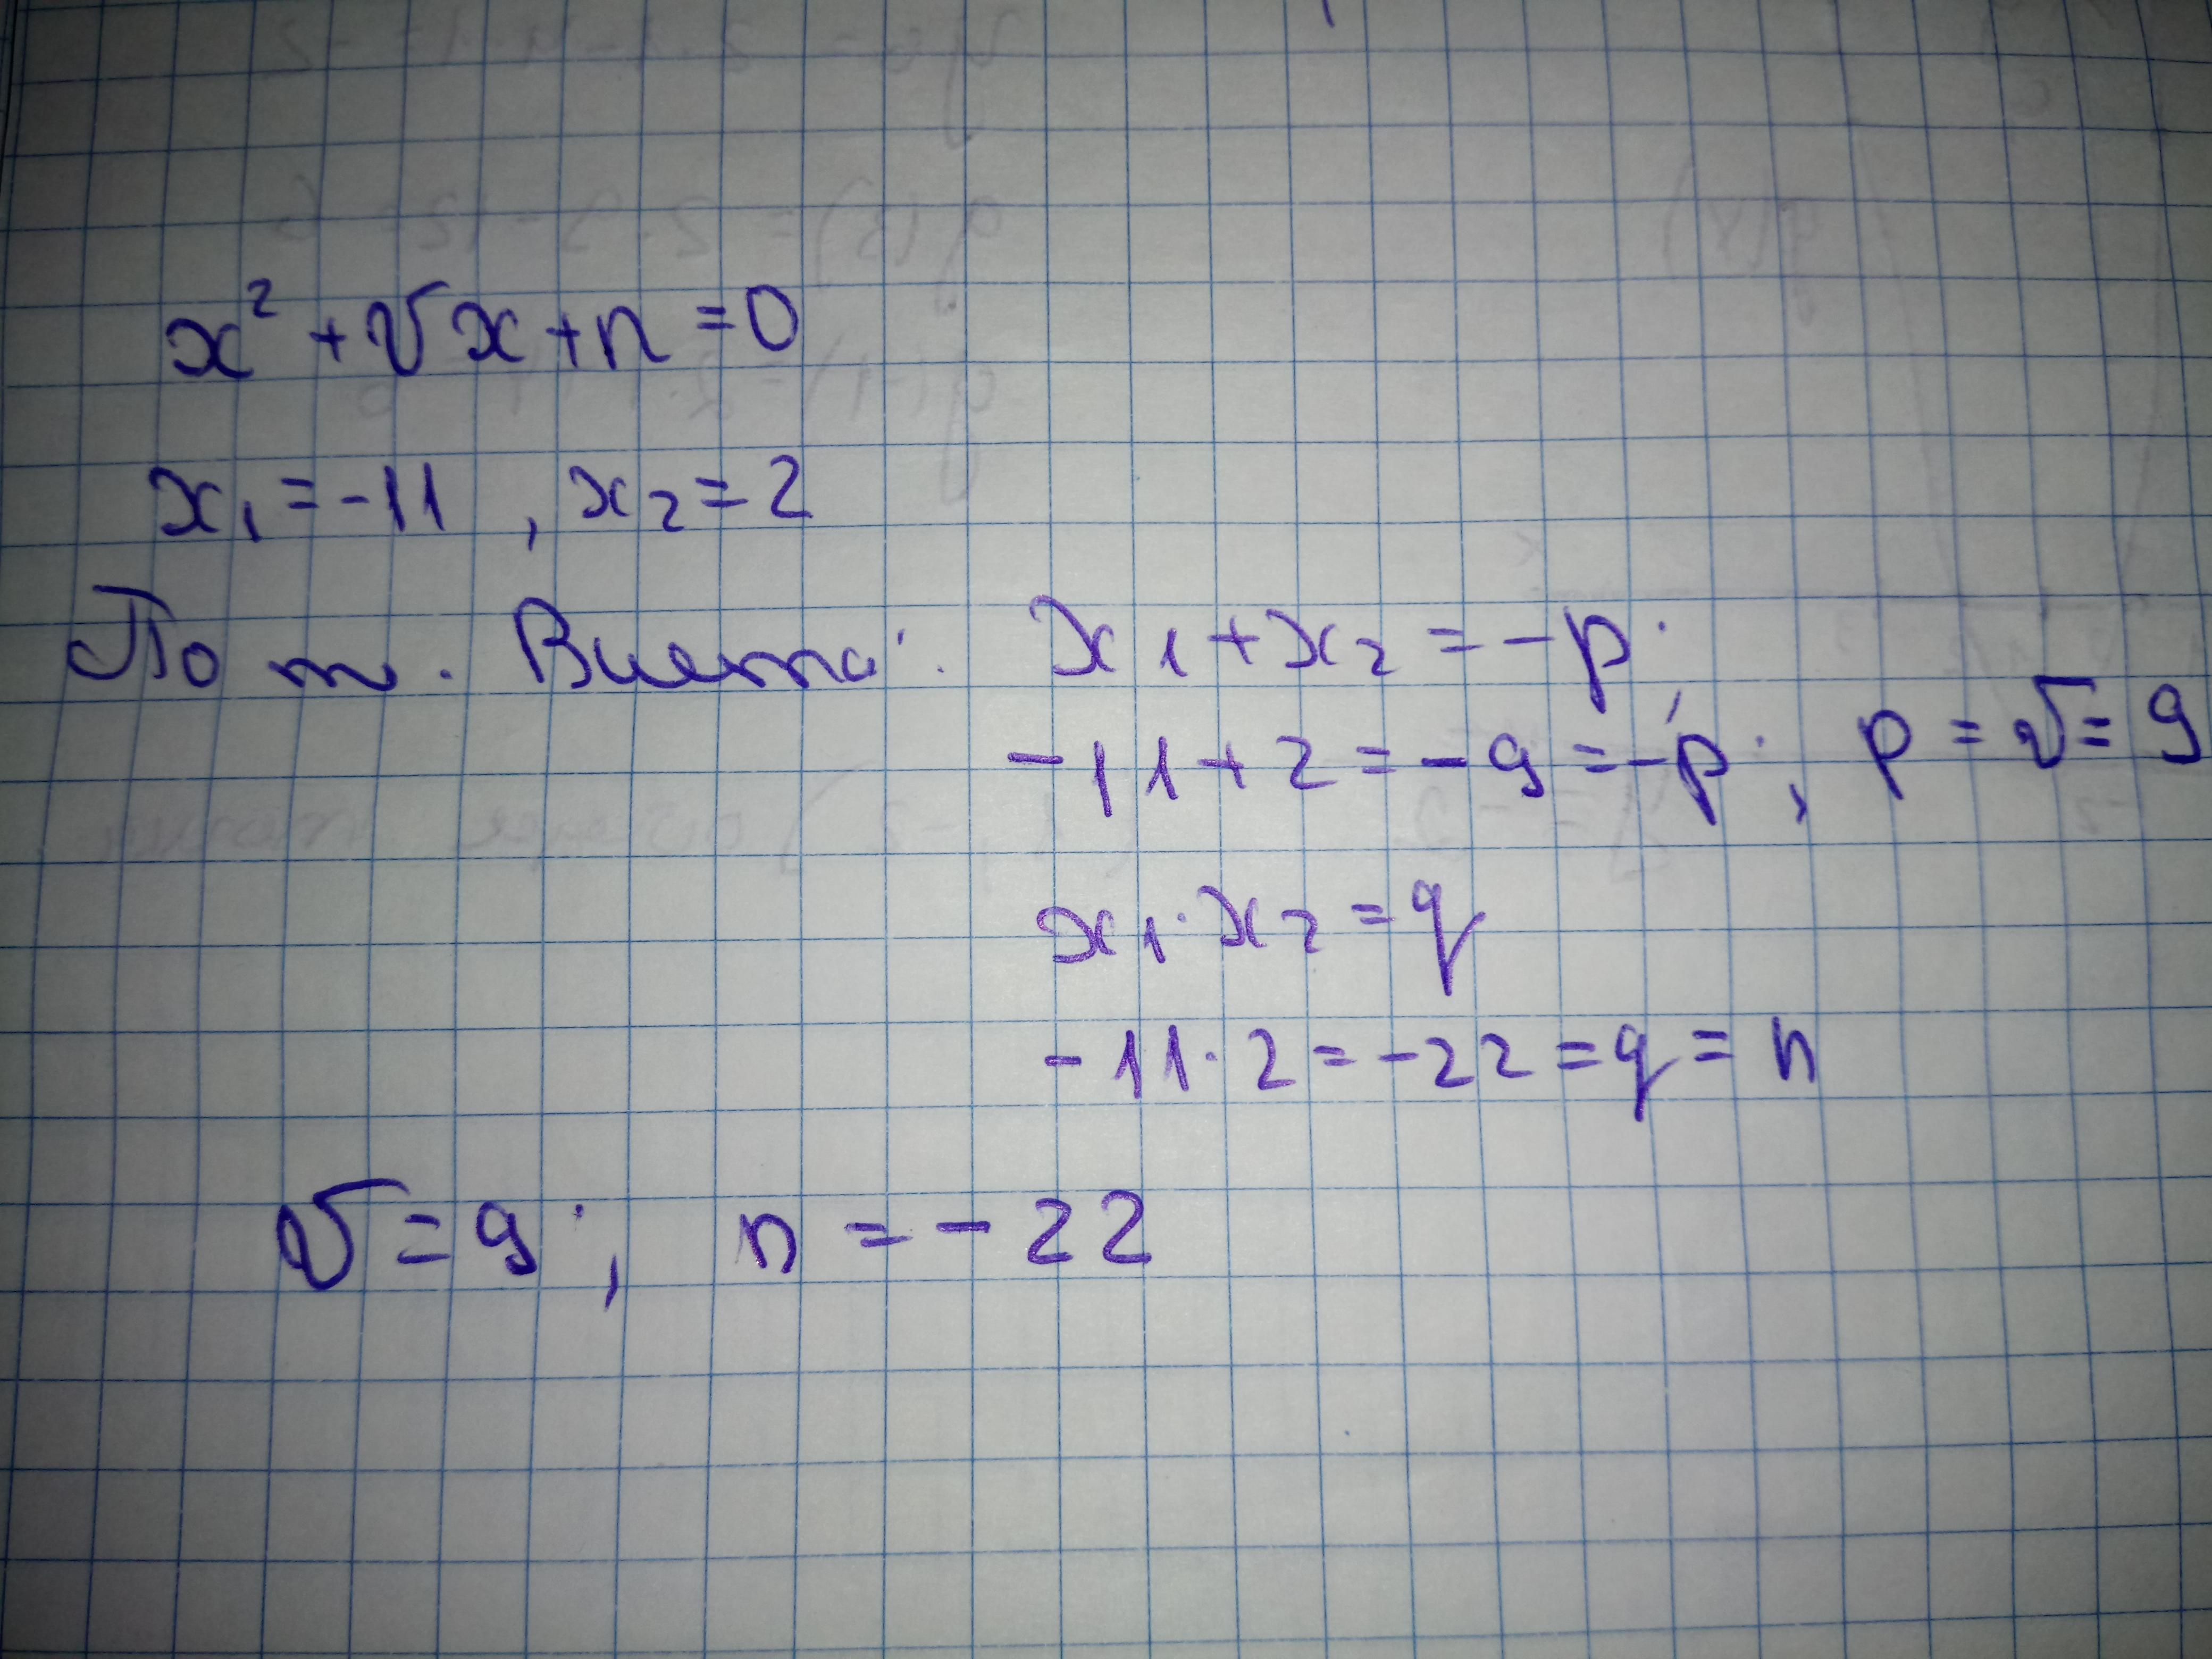 x² + vx + n = 0
x₁ = -11 , x₂ = 2
По т. Виета: x₁ + x₂ = -p;
-11 + 2 = -9 = -p; p = v = 9
x₁ · x₂ = q
-11 · 2 = -22 = q = n
v = 9; n = -22